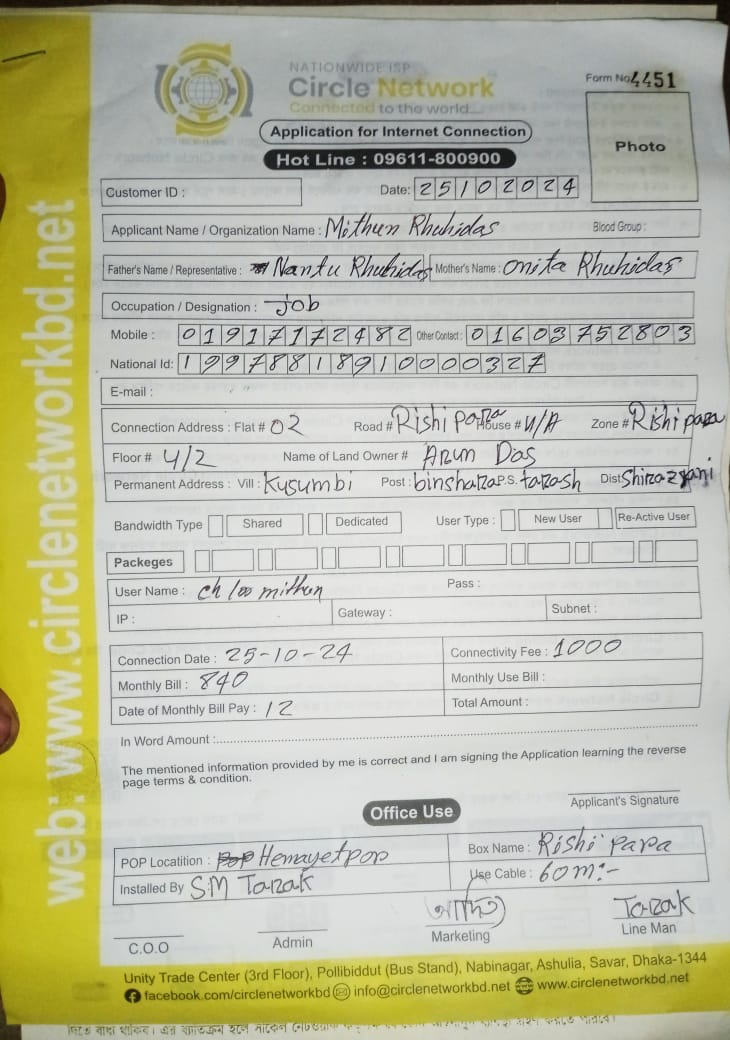 NATIONWIDE ISP
Circle Network
Connected to the world...
Form No 4451
Application for Internet Connection
Hot Line : 09611-800900
Photo
Customer ID :
Date: 25102024
Applicant Name / Organization Name : Mithun Rhuhidas Blood Group :
Father's Name / Representative : Nantu Rhuhidas Mother's Name : Onita Rhuhidas
Occupation / Designation : Job
Mobile : 01917172482 Other Contact : 01603752803
National Id: 19978818910000327
E-mail :
Connection Address : Flat # 02 Road # Rishi para House # N/A Zone # Rishi para
Floor # 4/2 Name of Land Owner # Arun Das
Permanent Address : Vill : Kusumbi Post : binshara P.S. tarash Dist Shirazganj
Bandwidth Type Shared Dedicated User Type : New User Re-Active User
Packeges
User Name : ch100 mithun Pass :
IP : Gateway : Subnet :
Connection Date : 25-10-24 Connectivity Fee : 1000
Monthly Bill : 840 Monthly Use Bill :
Date of Monthly Bill Pay : 12 Total Amount :
In Word Amount :
The mentioned information provided by me is correct and I am signing the Application learning the reverse
page terms & condition.
Applicant's Signature
Office Use
POP Locatition : Hemayetpop Box Name : Rishi Para
Installed By SM Tarak Use Cable : 60m:-
Tarak
C.O.O Admin Marketing Line Man
Unity Trade Center (3rd Floor), Pollibiddut (Bus Stand), Nabinagar, Ashulia, Savar, Dhaka-1344
facebook.com/circlenetworkbd info@circlenetworkbd.net www.circlenetworkbd.net
web: www.circlenetworkbd.net